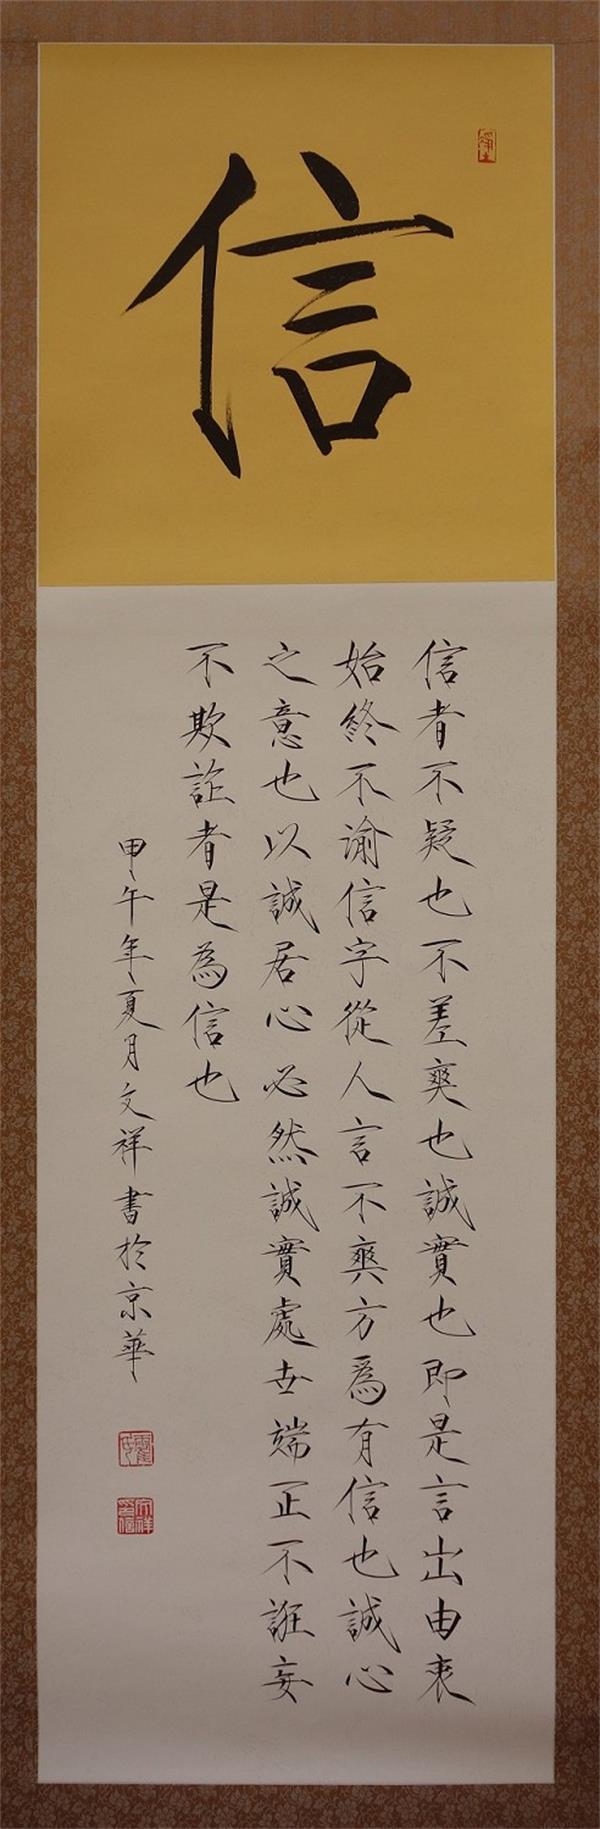 信
信者不疑也不差爽也誠實也即是言出由衷
始終不渝信字從人言不爽方為有信也誠心
之意也以誠居心必然誠實處世端正不誑妄
不欺詐者是為信也
甲午年夏月文祥書於京華